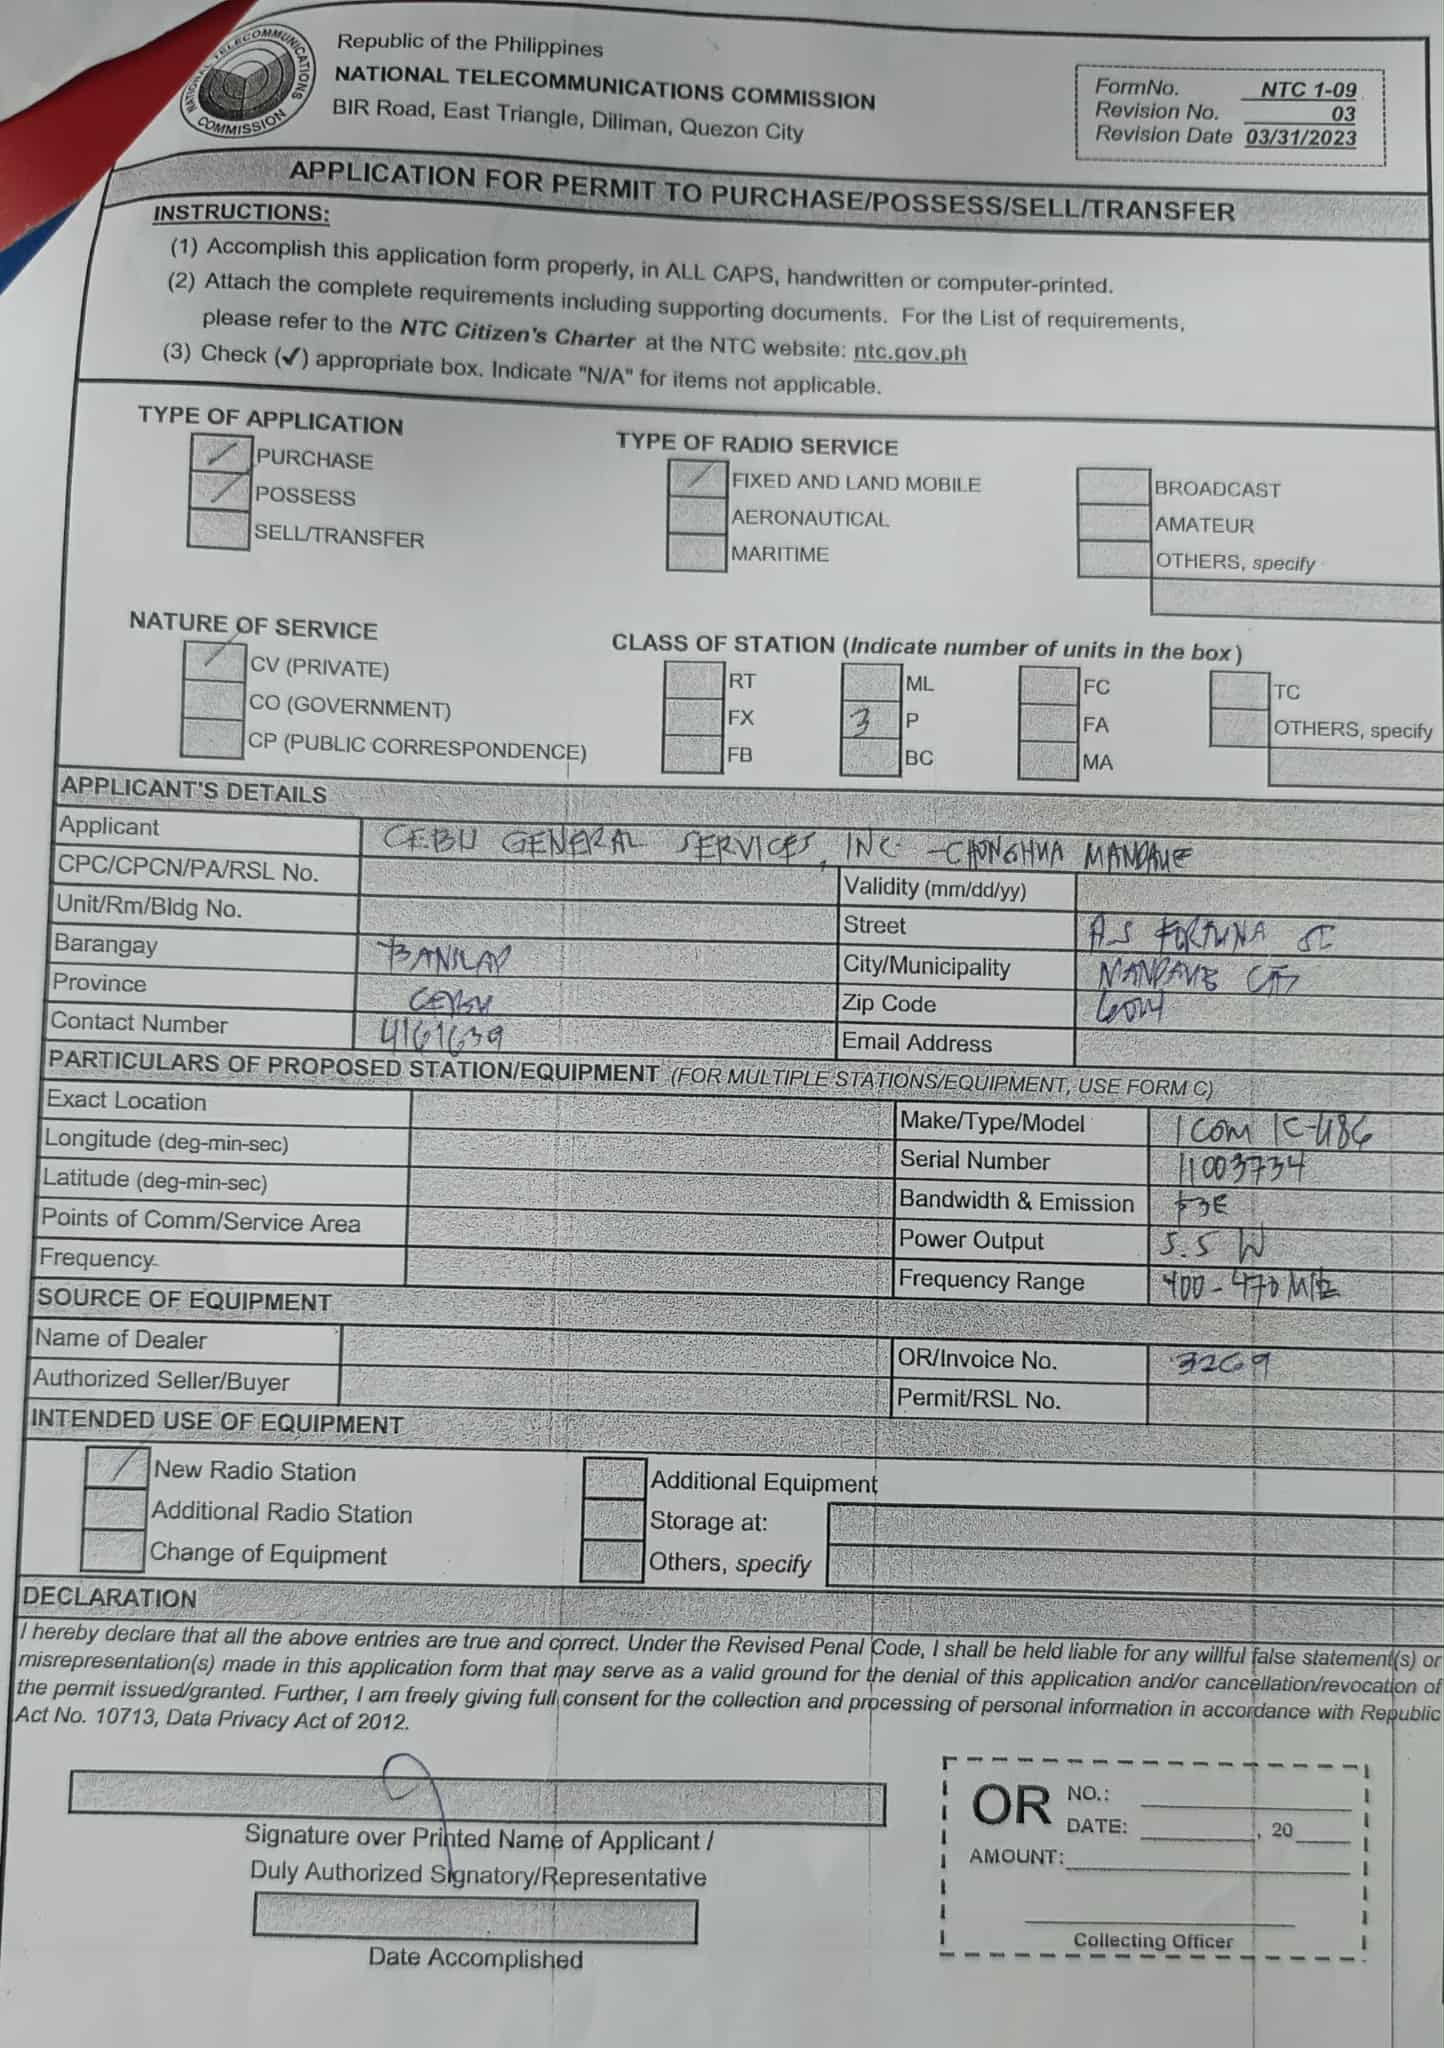 NATIONAL TELECOMMUNICATIONS COMMISSION
Republic of the Philippines
NATIONAL TELECOMMUNICATIONS COMMISSION
BIR Road, East Triangle, Diliman, Quezon City
FormNo. NTC 1-09
Revision No. 03
Revision Date 03/31/2023
APPLICATION FOR PERMIT TO PURCHASE/POSSESS/SELL/TRANSFER
INSTRUCTIONS:
(1) Accomplish this application form properly, in ALL CAPS, handwritten or computer-printed.
(2) Attach the complete requirements including supporting documents. For the List of requirements,
please refer to the NTC Citizen's Charter at the NTC website: ntc.gov.ph
(3) Check (✓) appropriate box. Indicate "N/A" for items not applicable.
TYPE OF APPLICATION
/ PURCHASE
/ POSSESS
SELL/TRANSFER
TYPE OF RADIO SERVICE
/ FIXED AND LAND MOBILE
AERONAUTICAL
MARITIME
BROADCAST
AMATEUR
OTHERS, specify
NATURE OF SERVICE
/ CV (PRIVATE)
CO (GOVERNMENT)
CP (PUBLIC CORRESPONDENCE)
CLASS OF STATION (Indicate number of units in the box)
RT ML FC TC
FX 3 P FA OTHERS, specify
FB BC MA
APPLICANT'S DETAILS
Applicant CEBU GENERAL SERVICES, INC. - CHONGHUA MANDAUE
CPC/CPCN/PA/RSL No. Validity (mm/dd/yy)
Unit/Rm/Bldg No. Street A.S FORTUNA ST
Barangay BANILAD City/Municipality MANDAUE CITY
Province CEBU Zip Code 6014
Contact Number 4161639 Email Address
PARTICULARS OF PROPOSED STATION/EQUIPMENT (FOR MULTIPLE STATIONS/EQUIPMENT, USE FORM C)
Exact Location Make/Type/Model ICOM IC-U86
Longitude (deg-min-sec) Serial Number 11003734
Latitude (deg-min-sec) Bandwidth & Emission F3E
Points of Comm/Service Area Power Output 5.5 W
Frequency Frequency Range 400-470 MHz
SOURCE OF EQUIPMENT
Name of Dealer OR/Invoice No. 3269
Authorized Seller/Buyer Permit/RSL No.
INTENDED USE OF EQUIPMENT
/ New Radio Station Additional Equipment
Additional Radio Station Storage at:
Change of Equipment Others, specify
DECLARATION
I hereby declare that all the above entries are true and correct. Under the Revised Penal Code, I shall be held liable for any willful false statement(s) or
misrepresentation(s) made in this application form that may serve as a valid ground for the denial of this application and/or cancellation/revocation of
the permit issued/granted. Further, I am freely giving full consent for the collection and processing of personal information in accordance with Republic
Act No. 10713, Data Privacy Act of 2012.
Signature over Printed Name of Applicant /
Duly Authorized Signatory/Representative
Date Accomplished
OR NO.:
DATE: , 20
AMOUNT:
Collecting Officer